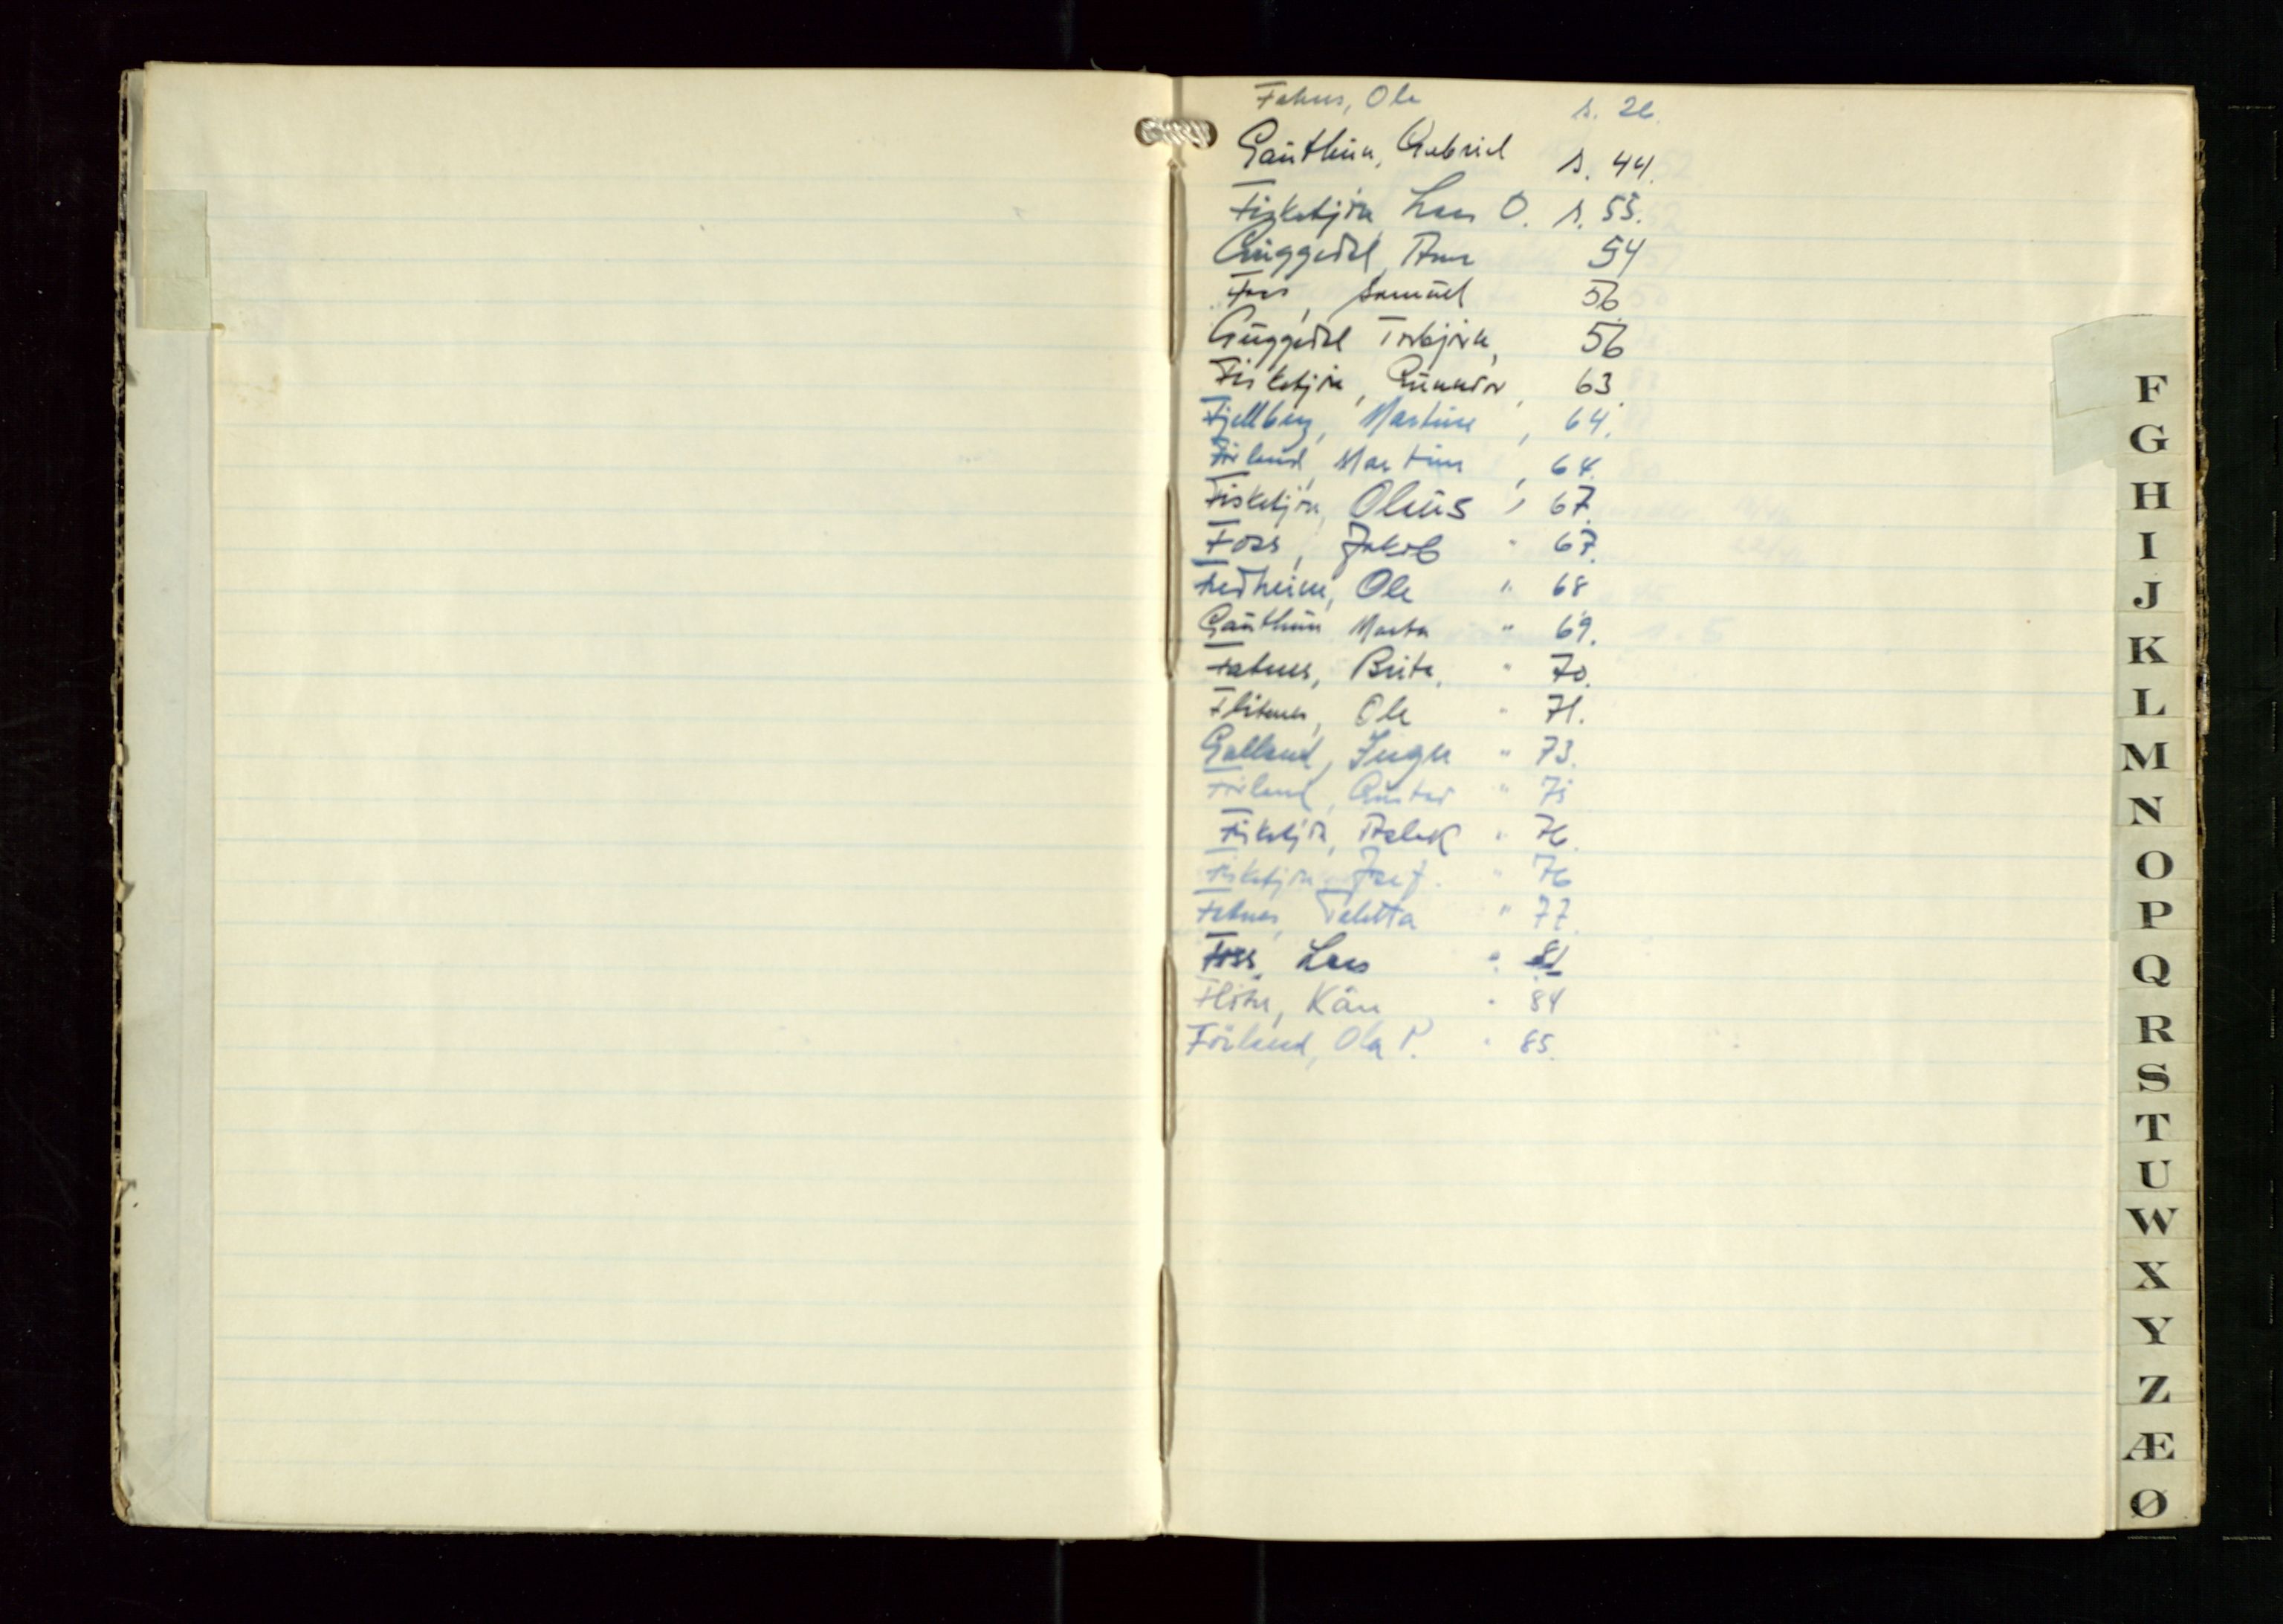 Fatnes, Ole s. 26.
Gauthun, Gabriel s. 44.
Fisketjøn Lars O. s. 55.
Guggedal, Arne 54
Foss, Samuel 56
Guggedal Torbjørn, 56
Fisketjøn, Gunnar, 63.
Fjellberg, Martine, 64.
Førland, Martin, 64.
Fisketjøn, Olaus, 67.
Foss, Jakob " 67.
Fedheim, Ole " 68
Gauthun Marta " 69.
Fatnes, Brita, " 70.
Flitnes, Ole " 71.
Galland, Inger " 73.
Førland, Gustav " 75
Fisketjøn, Aslak " 76.
Fisketjøn Josef. " 76
Fatnes, Taletta " 77.
Foss, Lars " 81
Kåre " 84
Førland, Ola P. " 85.
F
G
H
I
J
K
L
M
N
O
P
Q
R
S
T
U
W
X
Y
Z
Æ
Ø